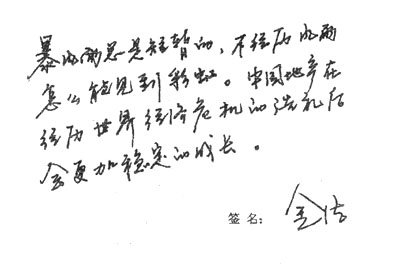 暴风雨总是短暂的，不经历风雨
怎么能见到彩虹。中国地产在
经历世界经济危机的洗礼后
会更加稳定的成长。
签名：